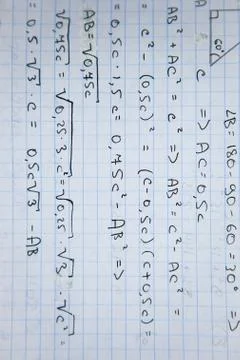 60°
A c
∠B = 180 - 90 - 60 = 30° =>
=> AC = 0,5c
AB² + AC² = c² => AB² = c² - AC² =
= c² - (0,5c)² = (c - 0,5c)(c + 0,5c) =
= 0,5c · 1,5c = 0,75c² - AB² =>
AB = √0,75c
√0,75c = √0,25 · 3 · c² = √0,25 · √3 · √c² =
= 0,5 · √3 · c = 0,5c√3 - AB